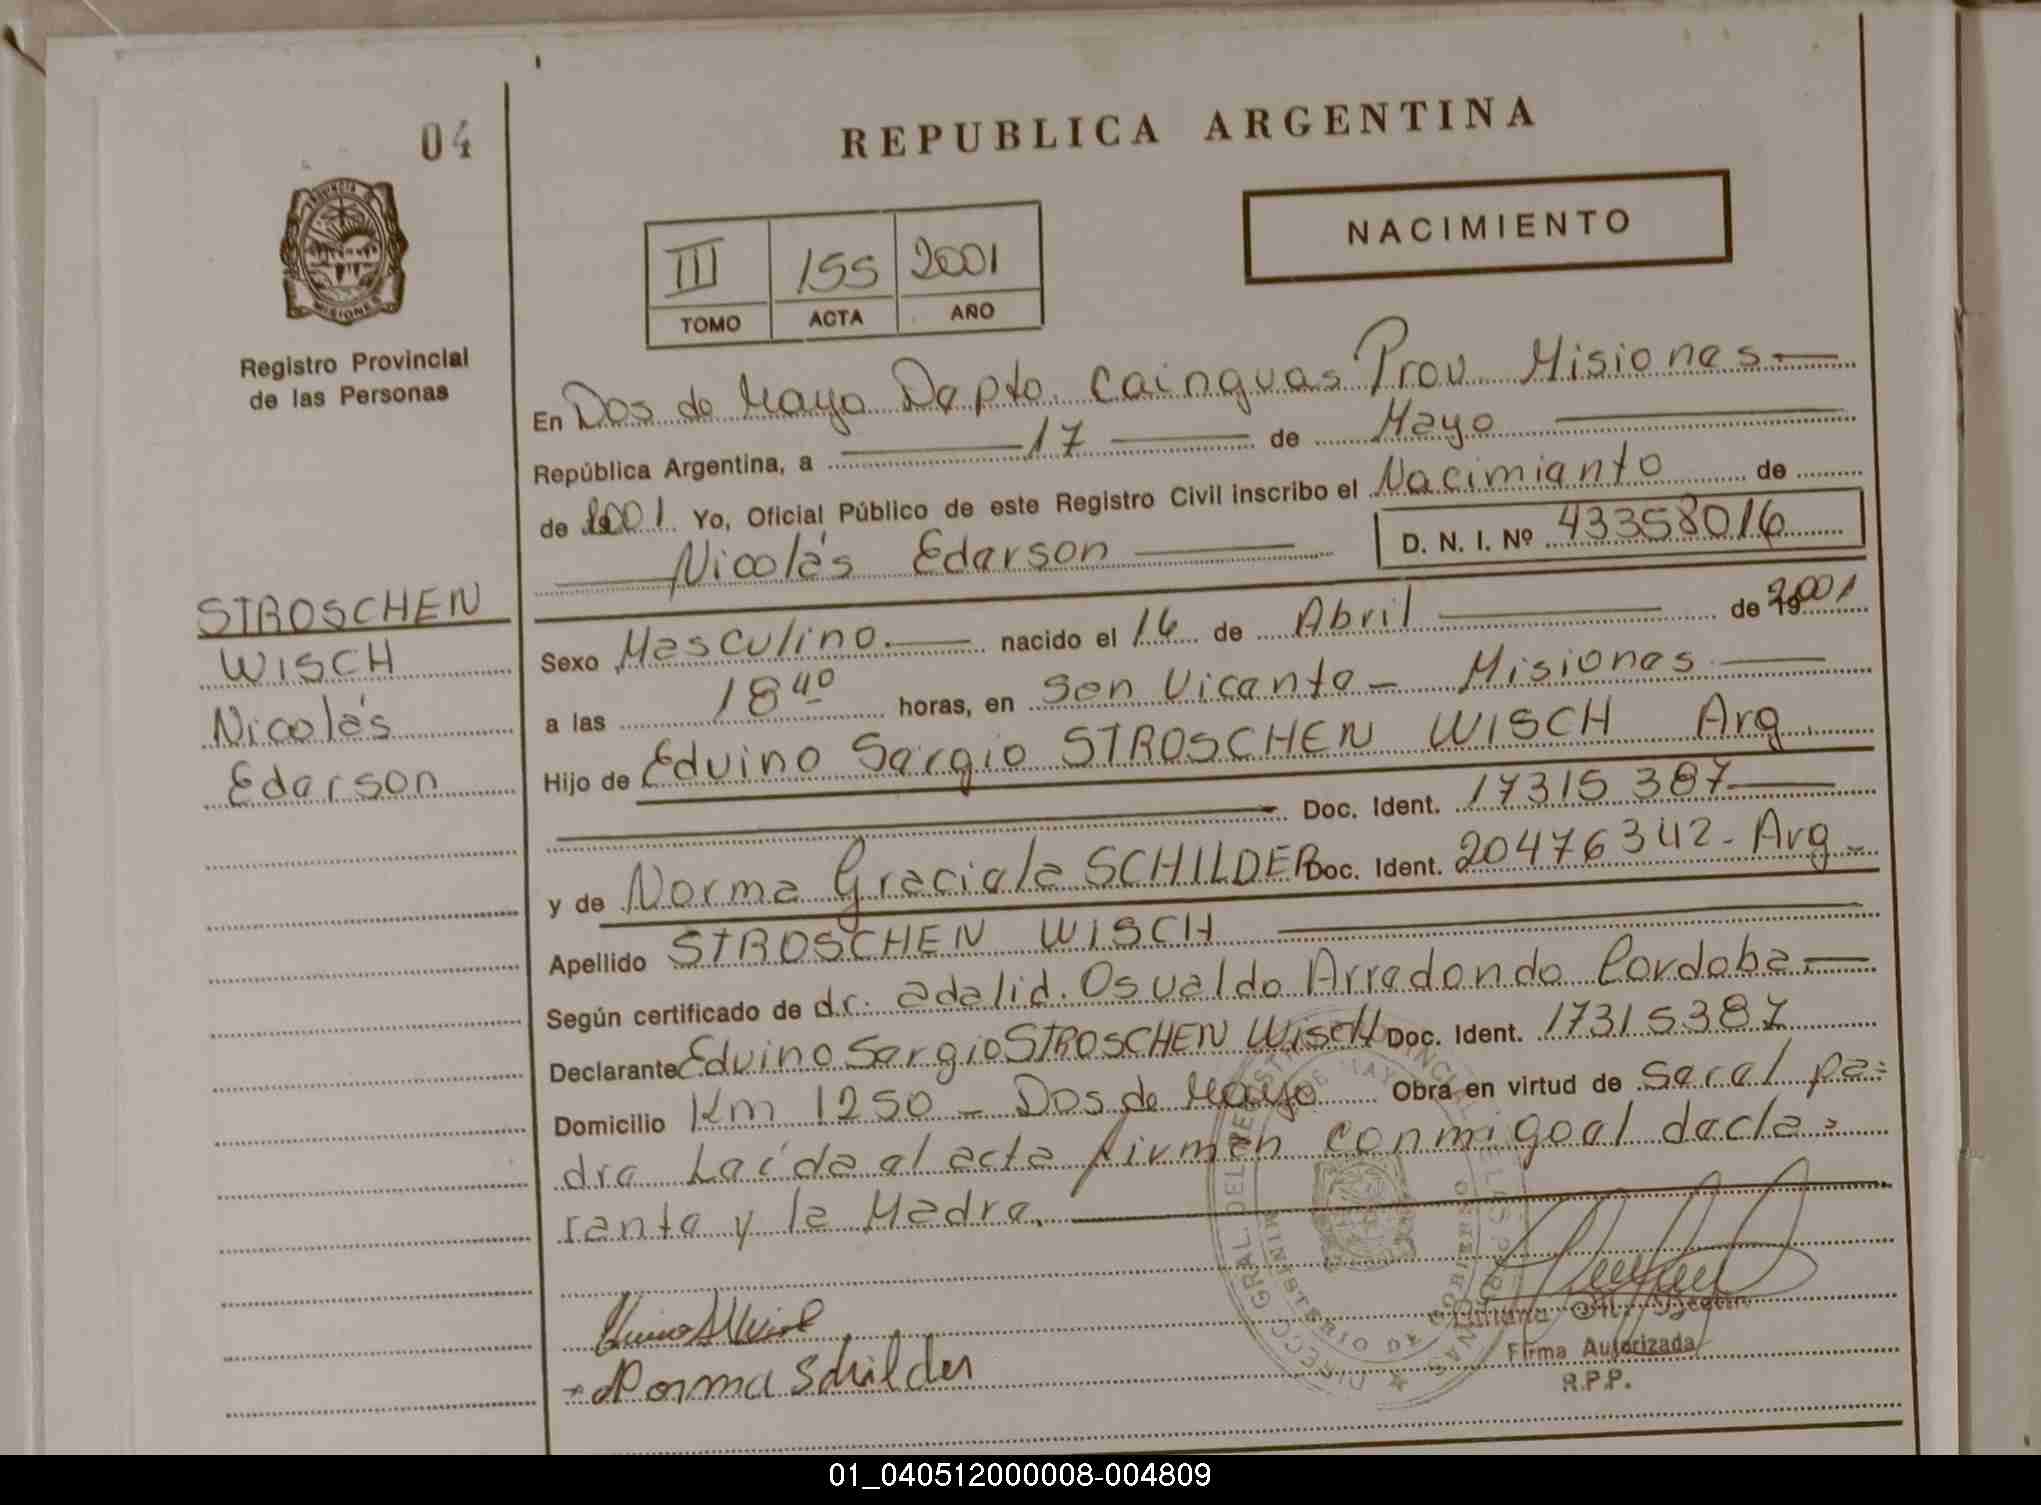 04
REPUBLICA ARGENTINA
NACIMIENTO
III 155 2001
TOMO ACTA AÑO
PROVINCIA
MISIONES
Registro Provincial
de las Personas
En Dos de Mayo Depto. Cainguas Prov. Misiones
República Argentina, a 17 de Mayo
de 2001 Yo, Oficial Público de este Registro Civil inscribo el Nacimiento de
Nicolás Ederson D. N. I. Nº 43358016
STROSCHEN
WISCH
Nicolás
Ederson
Sexo Masculino. nacido el 16 de Abril de 19 2001
a las 18 40 horas, en San Vicente - Misiones
Hijo de Eduino Sergio STROSCHEN WISCH Arg.
Doc. Ident. 17315387
y de Norma Graciela SCHILDER Doc. Ident. 20476342 - Arg -
Apellido STROSCHEN WISCH
Según certificado de dr. adalid. Osvaldo Arredondo Cordoba
Declarante Eduino Sergio STROSCHEN WISCH Doc. Ident. 17315387
Domicilio Km 1250 - Dos de Mayo Obra en virtud de ser el pa=
dre Leída el acta firman conmigo el decla=
rante y la Madre.
Norma Schilder
Firma Autorizada
R.P.P.
MINISTERIO DE GOBIERNO
01_040512000008-004809